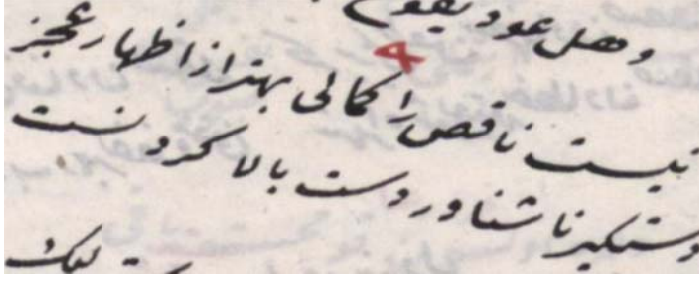 وهل عود یفوح
نیست ناقص را کمالی بهتر از اظهار عجز
دستگیر ناشناور دست بالا کردنست